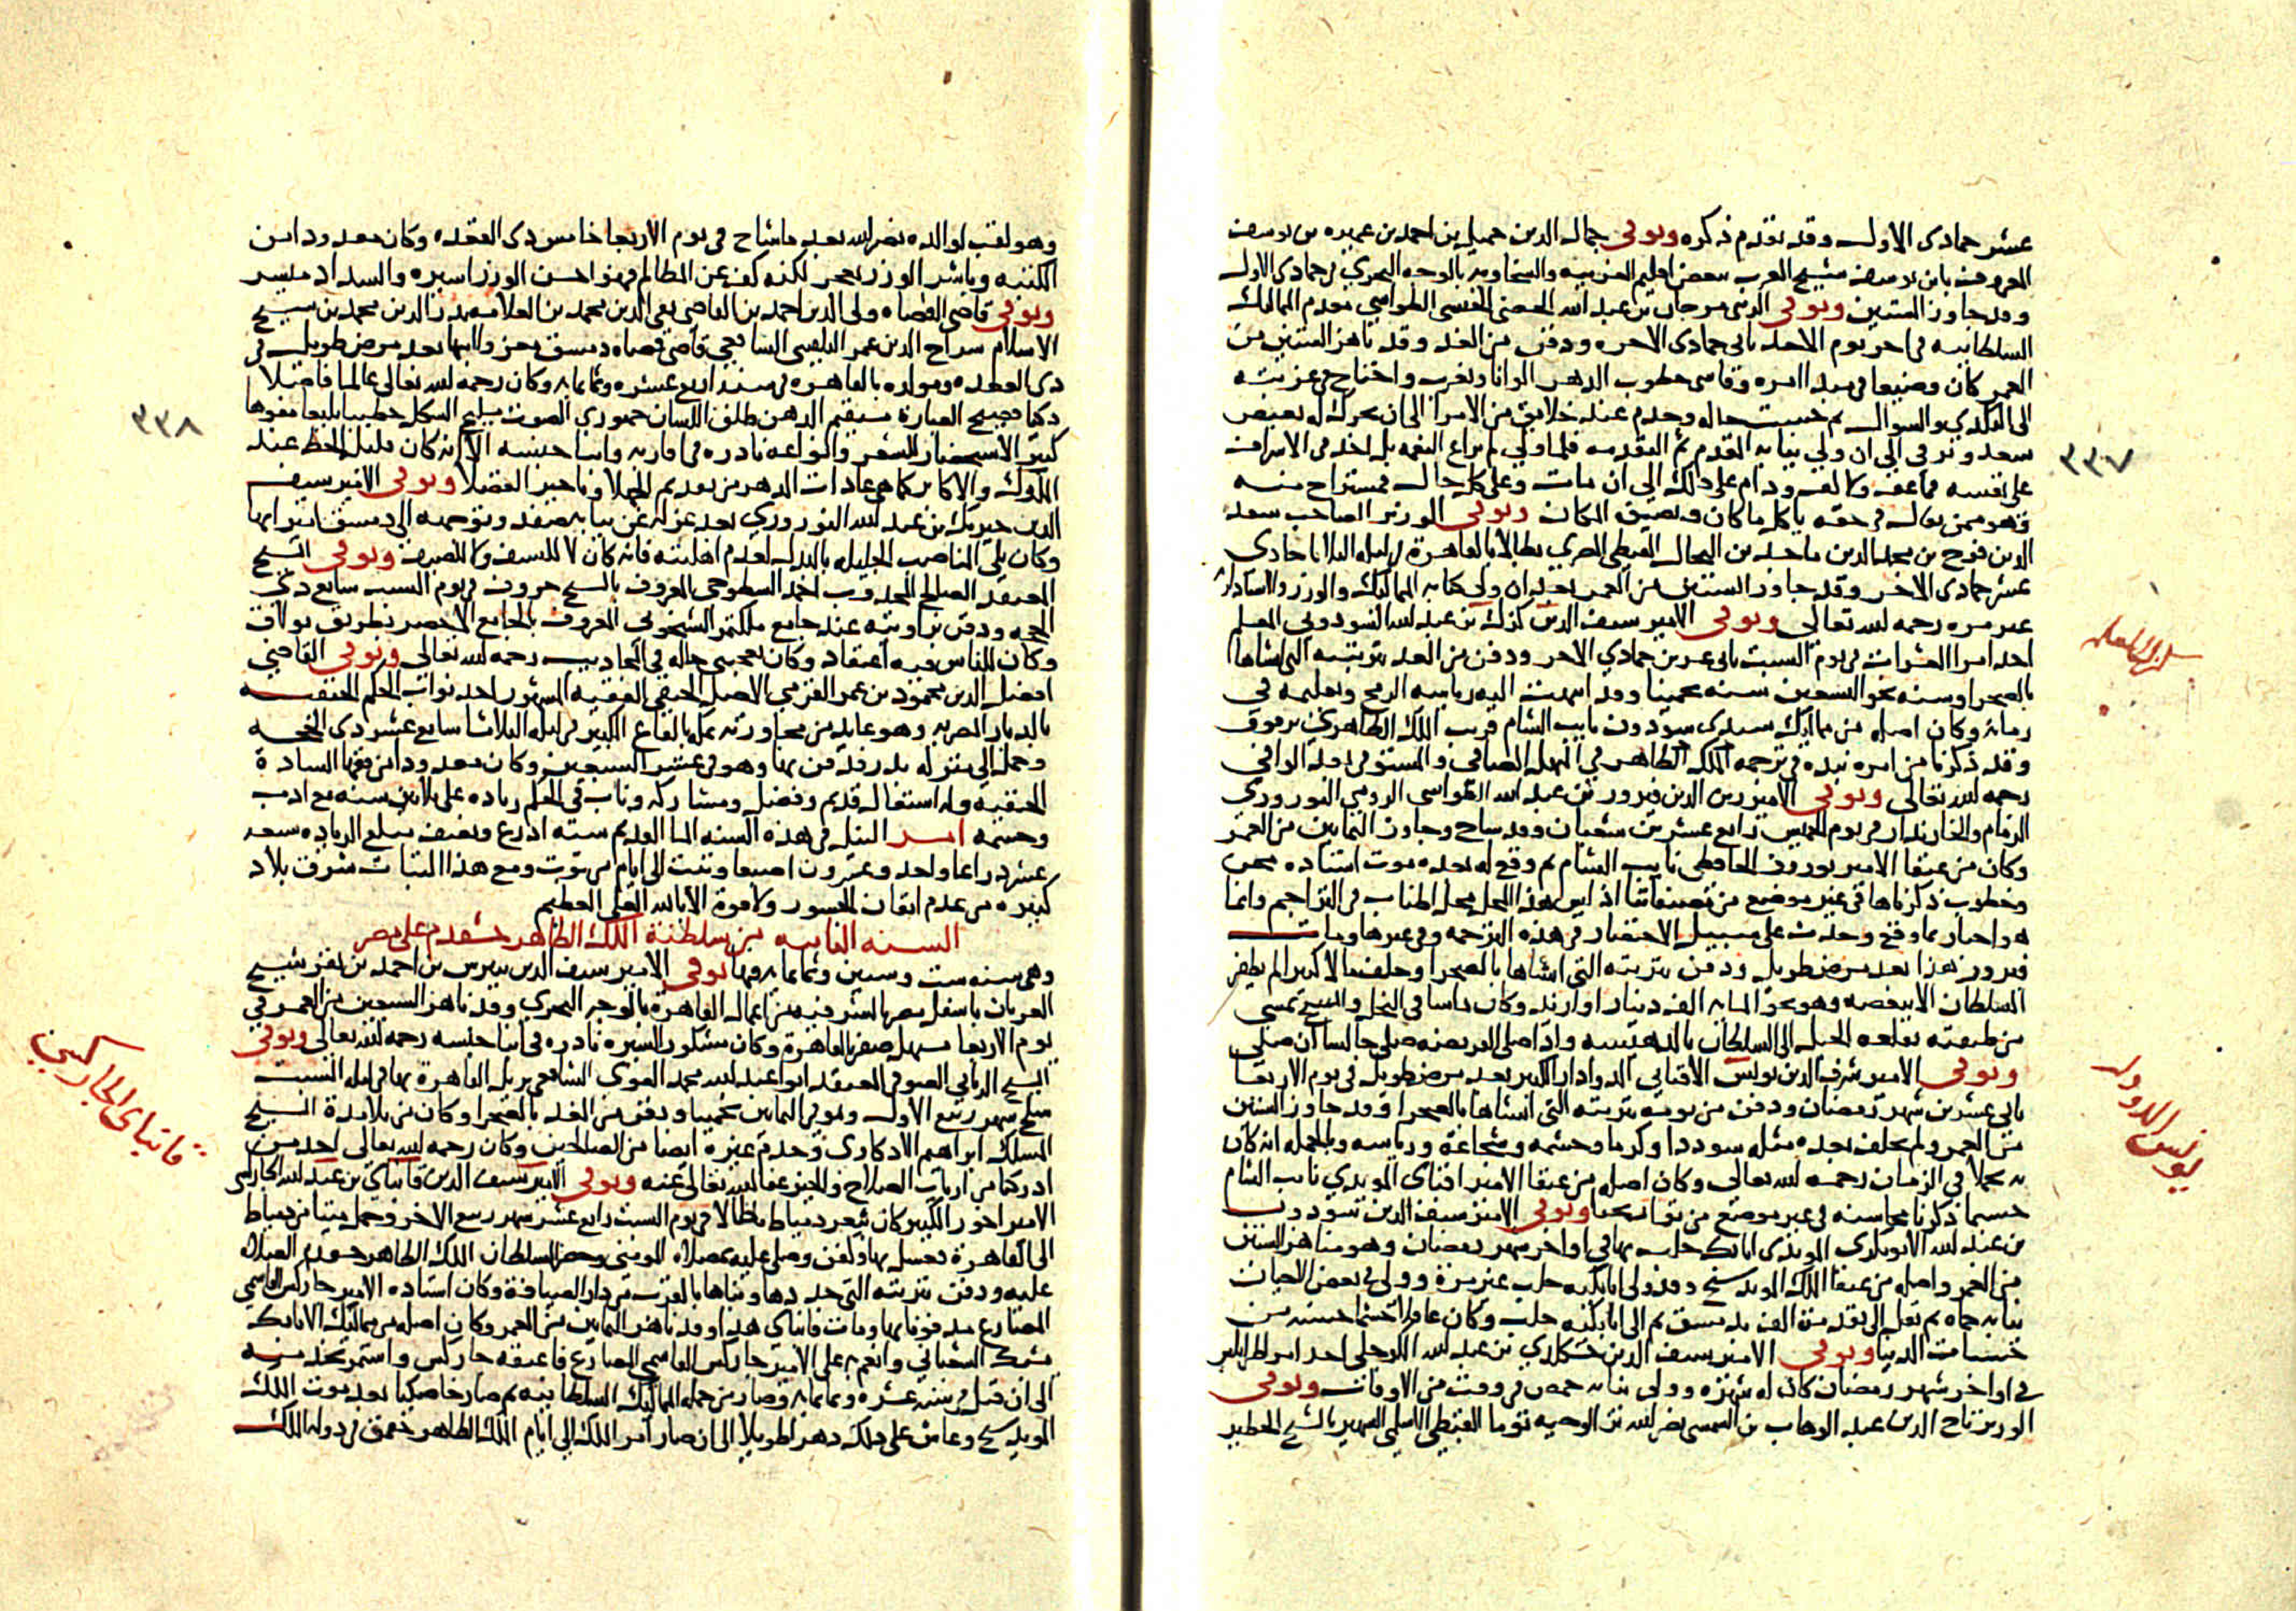 عشر جمادى الاولى وقد تقدم ذكره وتوفى جمال الدين جميل بن احمد بن عميره بن يوسف
المعروف بابن يوسف شيخ العرب ببعض اقليم الغربيه والسخاويه بالوجه البحري في جمادى الاولى
وقد جاوز الستين وتوفى الزينى مرجان بن عبد الله الحصنى الحبشى الطواشي مقدم المماليك
السلطانيه في اخر يوم الاحد ثانى جمادى الاخره ودفن من الغد وقد ناهز الستين من
العمر كان وضيعا في مبدا امره وقاسى خطوب الدهر الوانا وتغرب واحتاج في غربته
الى التكدي والسوال ثم حسنت حاله وخدم عند خلايق من الامرا الى ان تحرك له بعض
سعد وترقى الى ان ولي نيابه المقدم ثم التقدمه فلما ولي لم يراع النعمه بل اخذ في الاسراف
على نفسه فما عف ولا كف ودام على ذلك الى ان مات وعلى كل حال فمستراح منه
فهو ممن يقال في حقه ياكل ما كان ويضيق المكان وتوفى الوزير الصاحب سعد
الدين فرج بن مجد الدين ماجد بن النحال القبطى المصري بطالا بالقاهرة في ليله الثلاثا حادي
عشر جمادى الاخر وقد جاوز الستين من العمر بعد ان ولي كتابه المماليك والوزر والاستاداريه
غير مره رحمه الله تعالى وتوفى الامير سيف الدين كزل بن عبد الله السودونى المعلم
احد امرا العشرات في يوم السبت ثانى عشرين جمادي الاخر ودفن من الغد بتربته التى انشاها
بالصحرا وسنه نحو التسعين سنه تخمينا وقد انتهت اليه رياسه الرمح وتعليمه في
زمانه وكان اصله من مماليك سيدى سودون نايب الشام قريب الملك الظاهري برقوق
وقد ذكرنا من امره نبذه في ترجمه الملك الظاهر في المنهل الصافي والمستوفى بعد الوافى
رحمه الله تعالى وتوفى الامير زين الدين فيروز بن عبد الله الطواشى الرومي النوروزي
الزمام والخازندار في يوم الخميس رابع عشرين شعبان وقد شاخ وجاوز الثمانين من العمر
وكان من عتقا الامير نوروز الحافظى نايب الشام ثم وقع له بعده موت استاده محن
وخطوب ذكرناها في غير موضع من تصنيفاتنا اذ ليس هذا المحل محل اطناب في التراجم وانما
هو اخبار بما وقع وحدث على سبيل الاختصار في هذه الترجمه وفي غيرها ومات
فيروز هذا بعد مرض طويل ودفن بتربته التى انشاها بالصحرا وخلف مالا كثيرا لم يظفر
السلطان الا ببعضه وهو نحو المايه الف دينار او ازيد وكان راسا في البخل والشح يمشى
من طبقته بقلعه الجبل الى السلطان بالدهيشه واذا صلى الفريضه صلى جالسا ان صلى
وتوفى الامير شرف الدين يونس الاقبايى الدوادار الكبير بعد مرض طويل في يوم الاربعا
ثانى عشرين شهر رمضان ودفن من يومه بتربته التى انشاها بالصحرا وقد جاوز الستين
من العمر ولم يخلف بعده مثله سوددا وكرما وحشمه وشجاعة ورياسه وبالجمله انه كان
به تجملا في الزمان رحمه الله تعالى وكان اصله من عتقا الامير اقباى المويدي نايب الشام
حسبما ذكرنا محاسنه في غير موضع من تواريخنا وتوفى الامير سيف الدين سودون
بن عبد الله الابوبكرى المويدى اتابك حلب بها في اواخر شهر رمضان وهو مناهز الستين
من العمر واصله من عتقا الملك المويد شيخ وقد ولى اتابكيه حلب غير مرة وولى في بعض الاحيان
نيابه حماه ثم نقل الى تقدمة الف بدمشق ثم الى اتابكيه حلب وكان عاقلا حشما حسنه من
حسنات الدنيا وتوفى الامير سيف الدين خشكلدي بن عبد الله الكوجكى احد امرا طرابلس
في اواخر شهر رمضان كان له شهره وولى نيابه حمص في وقت من الاوقات وتوفى
الوزير تاج الدين عبد الوهاب بن الشمسى نصر الله بن الوجيه توما القبطى الاسلمي الشهير بالشيخ الخطير
٣٣٧
يونس الدوادار
وهو لقب لوالده نصر الله بعد ما شاخ في يوم الاربعا خامس ذى القعده وكان معدودا من
الكتبه وباشر الوزر بعجز لكنه كف عن المظالم فهو احسن الوزرا سيره والسداد ميسر
وتوفى قاضى القضاه ولى الدين احمد بن القاضى تقى الدين محمد بن العلامه بدر الدين محمد بن شيخ
الاسلام سراج الدين عمر البلقينى الشافعي قاضى قضاه دمشق معزولا بها بعد مرض طويل في
ذى القعده ومولده بالقاهره في سنة اربع عشره وثمانمايه وكان رحمه الله تعالى عالما فاضلا
ذكيا فصيح العبارة مستقيم الذهن طلق اللسان جهوري الصوت مليح الشكل خطيبا بليغا مفوها
كثير الاستحضار للشعر وانواعه نادره في اقاربه وابنا جنسه الا انه كان قليل الحظ عند
الملوك والاكابر كما هي عادات الدهر من تقديم الجهلا وتاخير الفضلا وتوفى الامير سيف
الدين خيربك بن عبد الله النوروزي بعد عزله عن نيابه صفد وتوجهه الى دمشق اميرا بها
وكان يلى المناصب الجليله بالبذل لعدم اهليته فانه كان لا للسيف ولا للضيف وتوفى الشيخ
المعتقد الصالح المجذوب احمد السطوحى المعروف بالشيخ خروف في يوم السبت سابع ذى
الحجه ودفن بزاويته عند جامع ملكتمر الشيخونى المعروف بالجامع الاخضر بطريق بولاق
وكان للناس فيه اعتقاد وكان يعجبنى حاله في المجاذيب رحمه الله تعالى وتوفى القاضي
افضل الدين محمود بن عمر القرمي الاصل الحنفى الفقيه المشهور احد نواب الحكم الحنفيه
بالديار المصريه وهو عايد من مجاورته بمكه بالقاع الكبير في ليله الثلاثا سابع عشر ذى الحجه
وحمل الى منزله بدر فدفن بها وهو في عشر السبعين وكان معدودا من فقها السادة
الحنفيه وله اشتغال قديم وفضل ومشاركه وناب في الحكم زياده على ثلاثين سنه مع ادب
وحشمه امر النيل في هذه السنه الما القديم سته اذرع ونصف مبلع الزياده سبعه
عشر ذراعا واحد وعشرون اصبعا وثبت الى ايام من توت ومع هذا الثبات شرق بلاد
كثيره من عدم اتقان الجسور ولا قوة الا بالله العلى العظيم
السنه الثانيه من سلطنة الملك الظاهر خشقدم على مصر
وهى سنه ست وستين وثمانمايه فيها توفى الامير سيف الدين بيبرس بن احمد بن بقر شيخ
العربان باسفل مصر بالشرقيه من اعمال القاهرة بالوجه البحرى وقد ناهز السبعين من العمر في
يوم الاربعا مستهل صفر بالقاهرة وكان مشكور السيره نادره في ابنا جنسه رحمه الله تعالى وتوفى
الشيخ الربانى الصوفى المعتقد ابو عبد الله محمد الفوى الشافعى نزيل القاهرة بها في ليله السبت
سلخ شهر ربيع الاول وهو في الثمانين تخمينا ودفن من الغد بالصحرا وكان من تلامذة الشيخ
المسلك ابراهيم الادكاوى وخدم غيره ايضا من الصالحين وكان رحمه الله تعالى احد من
ادركنا من ارباب الصلاح والخير عفا الله تعالى عنه وتوفى الامير سيف الدين قانباى بن عبد الله الجاركسى
الامير اخور الكبير كان بثغر دمياط بطالا في يوم السبت رابع عشر شهر ربيع الاخر وحمل ميتا من دمياط
الى القاهرة فغسل بها وكفن وصلى عليه بمصلاه المومنى وحضر السلطان الملك الظاهر خشقدم الصلاه
عليه ودفن بتربته التى جددها وبناها بالقرب من دار الضيافة وكان استاده الامير جاركس القاسمي
المصارع مدفونا بها ومات قانباى هذا وقد ناهز الثمانين من العمر وكان اصله من مماليك الاتابك
يشبك الشعبانى وانعم به على الامير جاركس القاسمي المصارع فاعتقه جاركس واستمر بخدمته
الى ان قتل في سنه عشره وثمانمايه وصار من جمله المماليك السلطانيه ثم صار خاصكيا بعد موت الملك
المويد شيخ وعاش على ذلك دهرا طويلا الى ان صار امر الملك الى ايام الملك الظاهر جقمق في دوله الملك
٣٣٨
قانباى الجاركسى